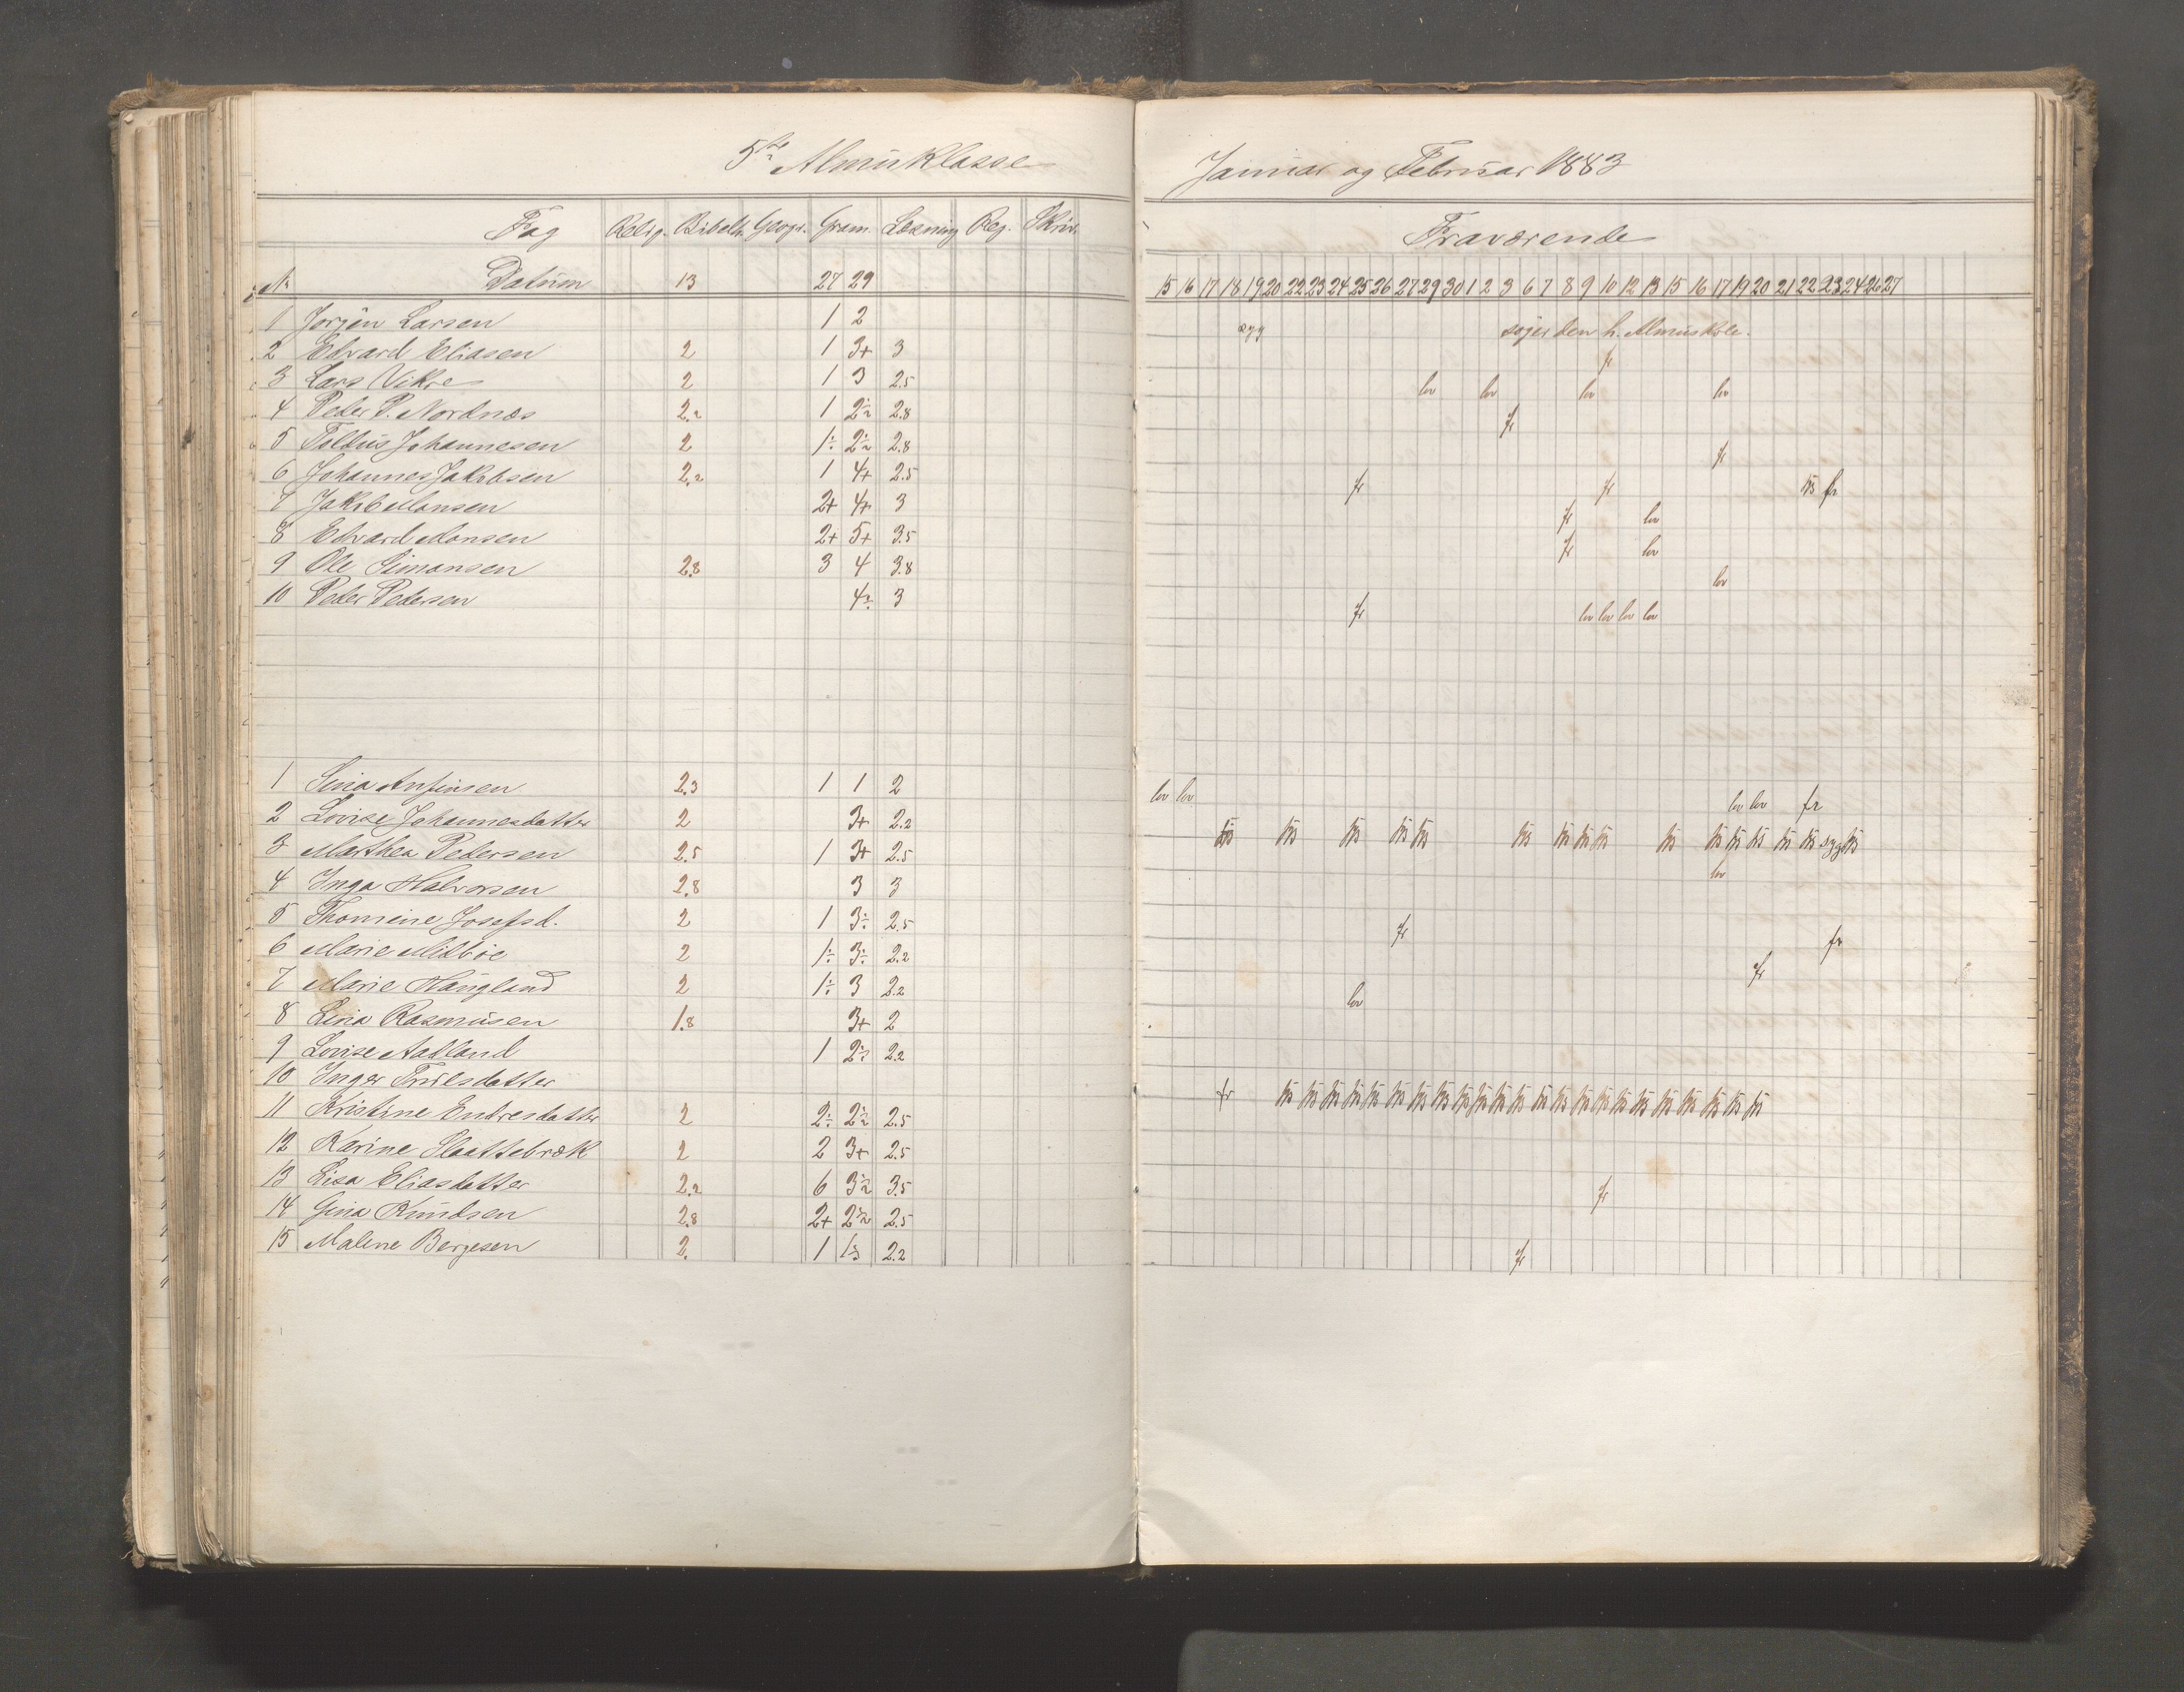 5te Almuklasse
Fag Relig. Bibelh. Geogr. Gram. Læsning Reg. Skriv.
N. Datum 13 27 29
1 Jørgen Larsen 1 2
2 Edvard Eliasen 2 1 3+ 3
3 Lars Vikre 2 1 3 2.5
4 Peder P. Nordnæs 2.2 1 2÷2 2.8
5 Johannesen 2 1÷ 2÷2 2.8
6 Johannes Jakobsen 2.2 1 4+ 2.5
7 Jakob Monsen 2+ 4+ 3
8 Edvard Monsen 2+ 5+ 3.5
9 Ole Simonsen 2.8 3 4 3.8
10 Peder Pedersen 4÷ 3
1 Sina Anfinsen 2.3 1 1 2
2 Lovise Johannesdatter 2 3+ 2.2
3 Marthea Pedersen 2.5 1 3+ 2.5
4 Inga Halvorsen 2.8 3 3
5 Thomine Josefsd. 2 1 3÷ 2.5
6 Marie Midbøe 2 1÷ 3÷ 2.2
7 Marie Haugland 2 1÷ 3 2.2
8 Lina Rasmusen 1.8 3+ 2
9 Lovise Aadland 1 2÷ 2.2
10 Inger Truelsdatter
11 Kristine Endresdatter 2 2÷ 2÷2 2.5
12 Karine Slaattebræk 2 2 3+ 2.5
13 Lisa Eliasdatter 2.2 6 3÷2 3.5
14 Gina Knudsen 2.8 2+ 2÷2 2.5
15 Malene Bergesen 2. 1 1÷3 2.2
Januar og Februar 1883
Fraværende
15 16 17 18 19 20 22 23 24 25 26 27 29 30 1 2 3 6 7 8 9 10 12 13 15 16 17 19 20 21 22 23 24 26 27
syg søger den h. Almuskole.
fr
lov lov lov lov
fr
fr
fr fr fr
fr lov
fr lov
lov
fr lov lov lov lov
lov lov lov lov fr
syg
lov
fr fr
fr
lov
fr
fr
fr